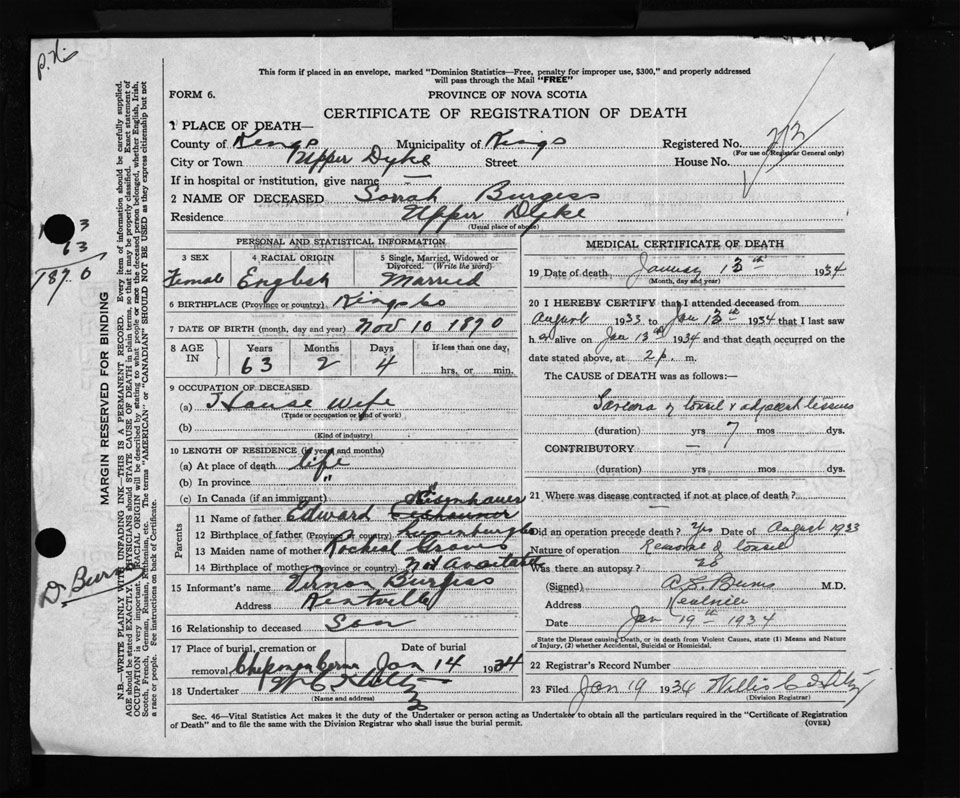 This form if placed in an envelope, marked "Dominion Statistics—Free, penalty for improper use, $300," and properly addressed
will pass through the Mail "FREE"
FORM 6.
PROVINCE OF NOVA SCOTIA
CERTIFICATE OF REGISTRATION OF DEATH
1 PLACE OF DEATH—
County of Kings Municipality of Kings Registered No. 213
(For use of Registrar General only)
City or Town Upper Dyke Street House No.
If in hospital or institution, give name —
2 NAME OF DECEASED Sarah Burgess
Residence Upper Dyke
(Usual place of abode)
PERSONAL AND STATISTICAL INFORMATION
3 SEX 4 RACIAL ORIGIN 5 Single, Married, Widowed or
Divorced. (Write the word)
Female English Married
6 BIRTHPLACE (Province or country) Kings Co
7 DATE OF BIRTH (month, day and year) Nov 10 1870
8 AGE IN Years Months Days If less than one day,
63 2 4 hrs. or min.
9 OCCUPATION OF DECEASED
(a) House Wife
(Trade or occupation or kind of work)
(b)
(Kind of industry)
10 LENGTH OF RESIDENCE (in years and months)
(a) At place of death life
(b) In province "
(c) In Canada (if an immigrant)
Parents
Eisenhauer
11 Name of father Edward
12 Birthplace of father (Province or country) Lunenburg Co
13 Maiden name of mother Racheal Graves
14 Birthplace of mother (Province or country) Not Available
15 Informant's name Vernon Burgess
Address Kentville
16 Relationship to deceased Son
17 Place of burial, cremation or Date of burial
removal Jan 14 1934
18 Undertaker
(Name and address)
MEDICAL CERTIFICATE OF DEATH
19 Date of death January 13th 1934
(Month, day and year)
20 I HEREBY CERTIFY that I attended deceased from
August 1933 to Jan 13th 1934 that I last saw
h er alive on Jan 13th 1934 and that death occurred on the
date stated above, at 2 p. m.
The CAUSE of DEATH was as follows:—
Sarcoma of tonsil & adjacent tissues
(duration) yrs 7 mos dys.
CONTRIBUTORY —
(duration) yrs mos dys.
21 Where was disease contracted if not at place of death?
—
Did an operation precede death? Yes Date of August 1933
Nature of operation Removal of tonsil
Was there an autopsy? no
(Signed) A.E. Burns M.D.
Address Kentville
Date Jan 19th 1934
State the Disease causing Death, or in death from Violent Causes, state (1) Means and Nature
of Injury, (2) whether Accidental, Suicidal or Homicidal.
22 Registrar's Record Number
23 Filed Jan 19 1934
(Division Registrar)
Sec. 46—Vital Statistics Act makes it the duty of the Undertaker or person acting as Undertaker to obtain all the particulars required in the "Certificate of Registration
of Death" and to file the same with the Division Registrar who shall issue the burial permit.
(OVER)
63
1870
Dr Burns
MARGIN RESERVED FOR BINDING
N.B.—WRITE PLAINLY WITH UNFADING INK—THIS IS A PERMANENT RECORD. Every item of information should be carefully supplied.
AGE should be stated EXACTLY. PHYSICIANS should STATE CAUSE OF DEATH in plain terms, so that it may be properly classified. Exact statement of
OCCUPATION is very important. RACIAL ORIGIN will be described by stating to what people or race the deceased person belonged, whether English, Irish,
Scotch, French, German, Russian, Ruthenian, etc. The terms "AMERICAN" or "CANADIAN" SHOULD NOT BE USED as they express citizenship but not
a race or people. See instructions on back of Certificate.